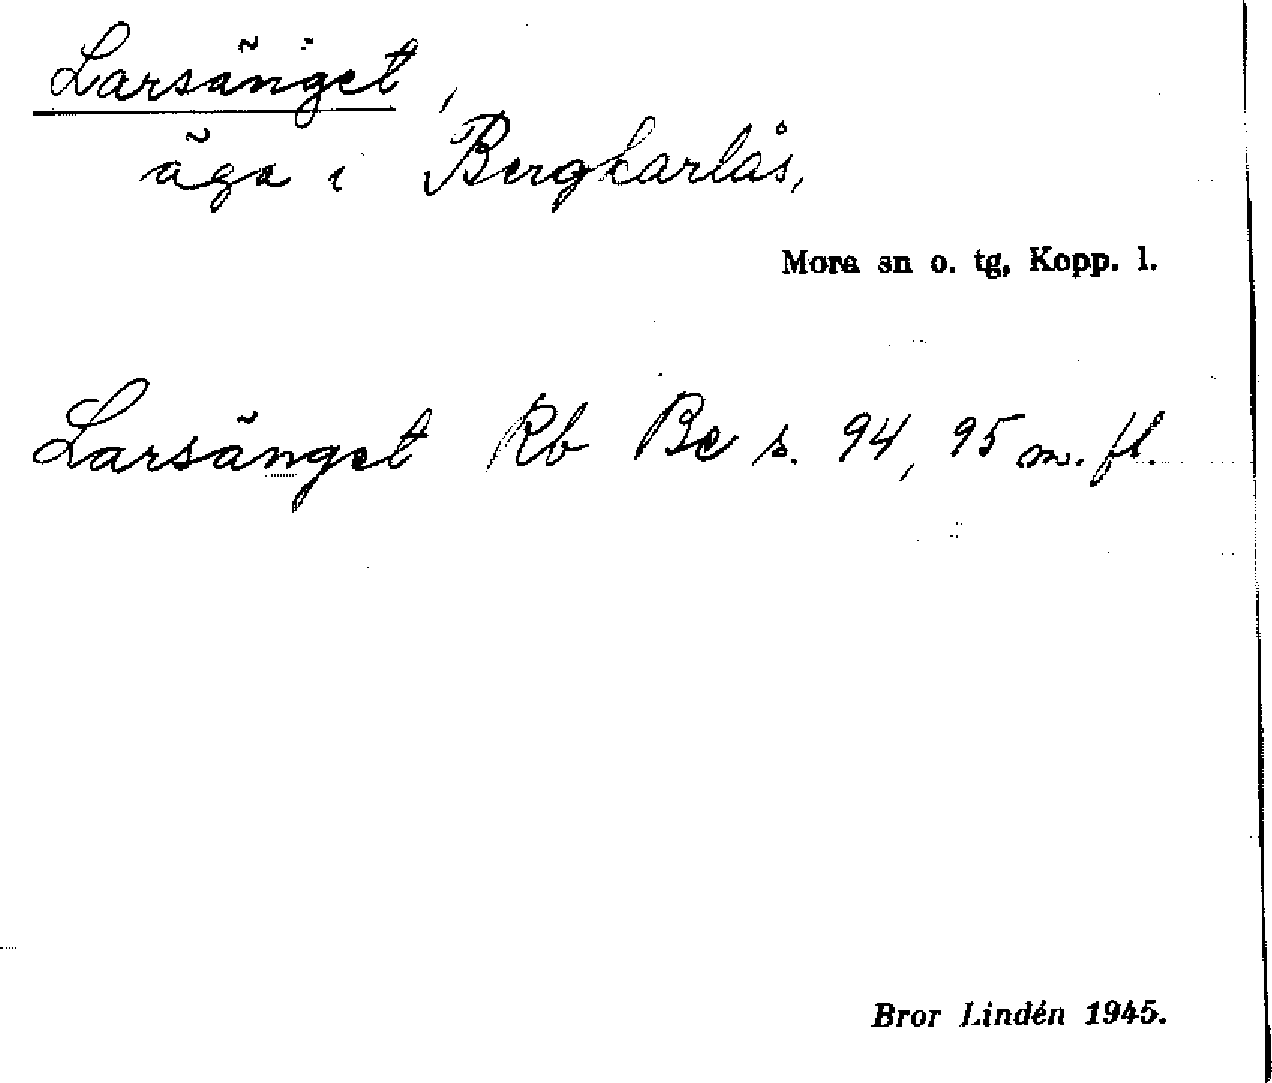 Larsänget,
äga i Bergkarlås,
Mora sn o. tg, Kopp. l.
Larsänget Rb Be s. 94, 95 m. fl.
Bror Lindén 1945.